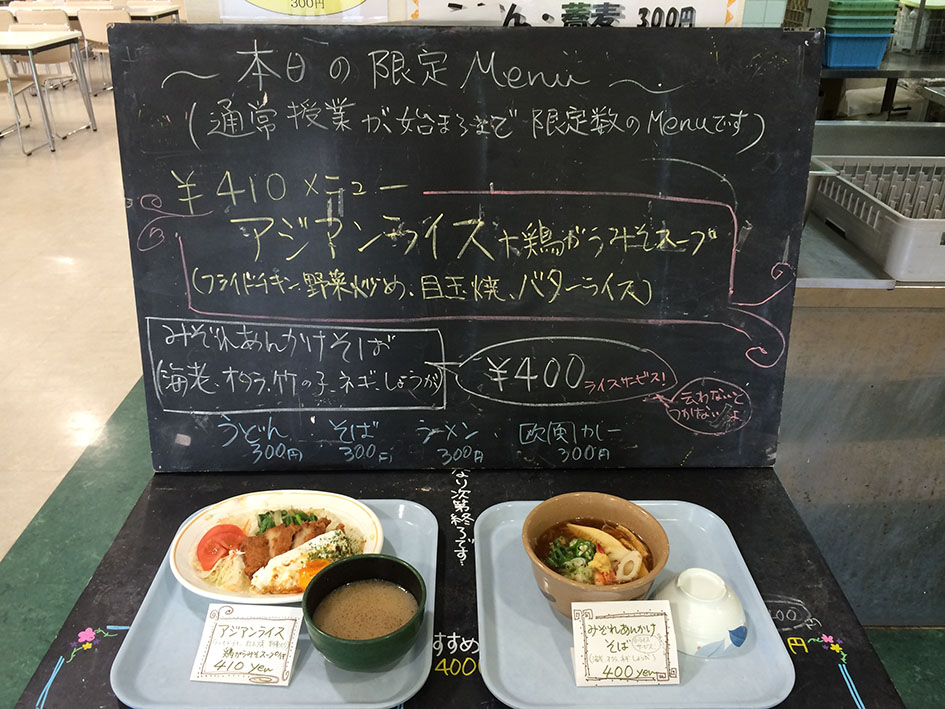 300円
うどん・蕎麦 300円
～ 本日の 限定 Menu ～
(通常授業が始まるまで 限定数のMenuです)
¥410 メニュー
アジアンライス + 鶏がらみそスープ
(フライドチキン 野菜炒め、目玉焼、バターライス)
みぞれあんかけそば
(海老、オクラ、竹の子、ネギ、しょうが)
¥400 ライスサービス!
云わないと
つかないよ
うどん 300円
そば 300円
ラーメン 300円
欧風カレー 300円
なり次第終了です
アジアンライス
鶏がらみそスープ付
410 yen
みぞれあんかけ
そば
ライス
サービス
400 yen
すすめ
400
円